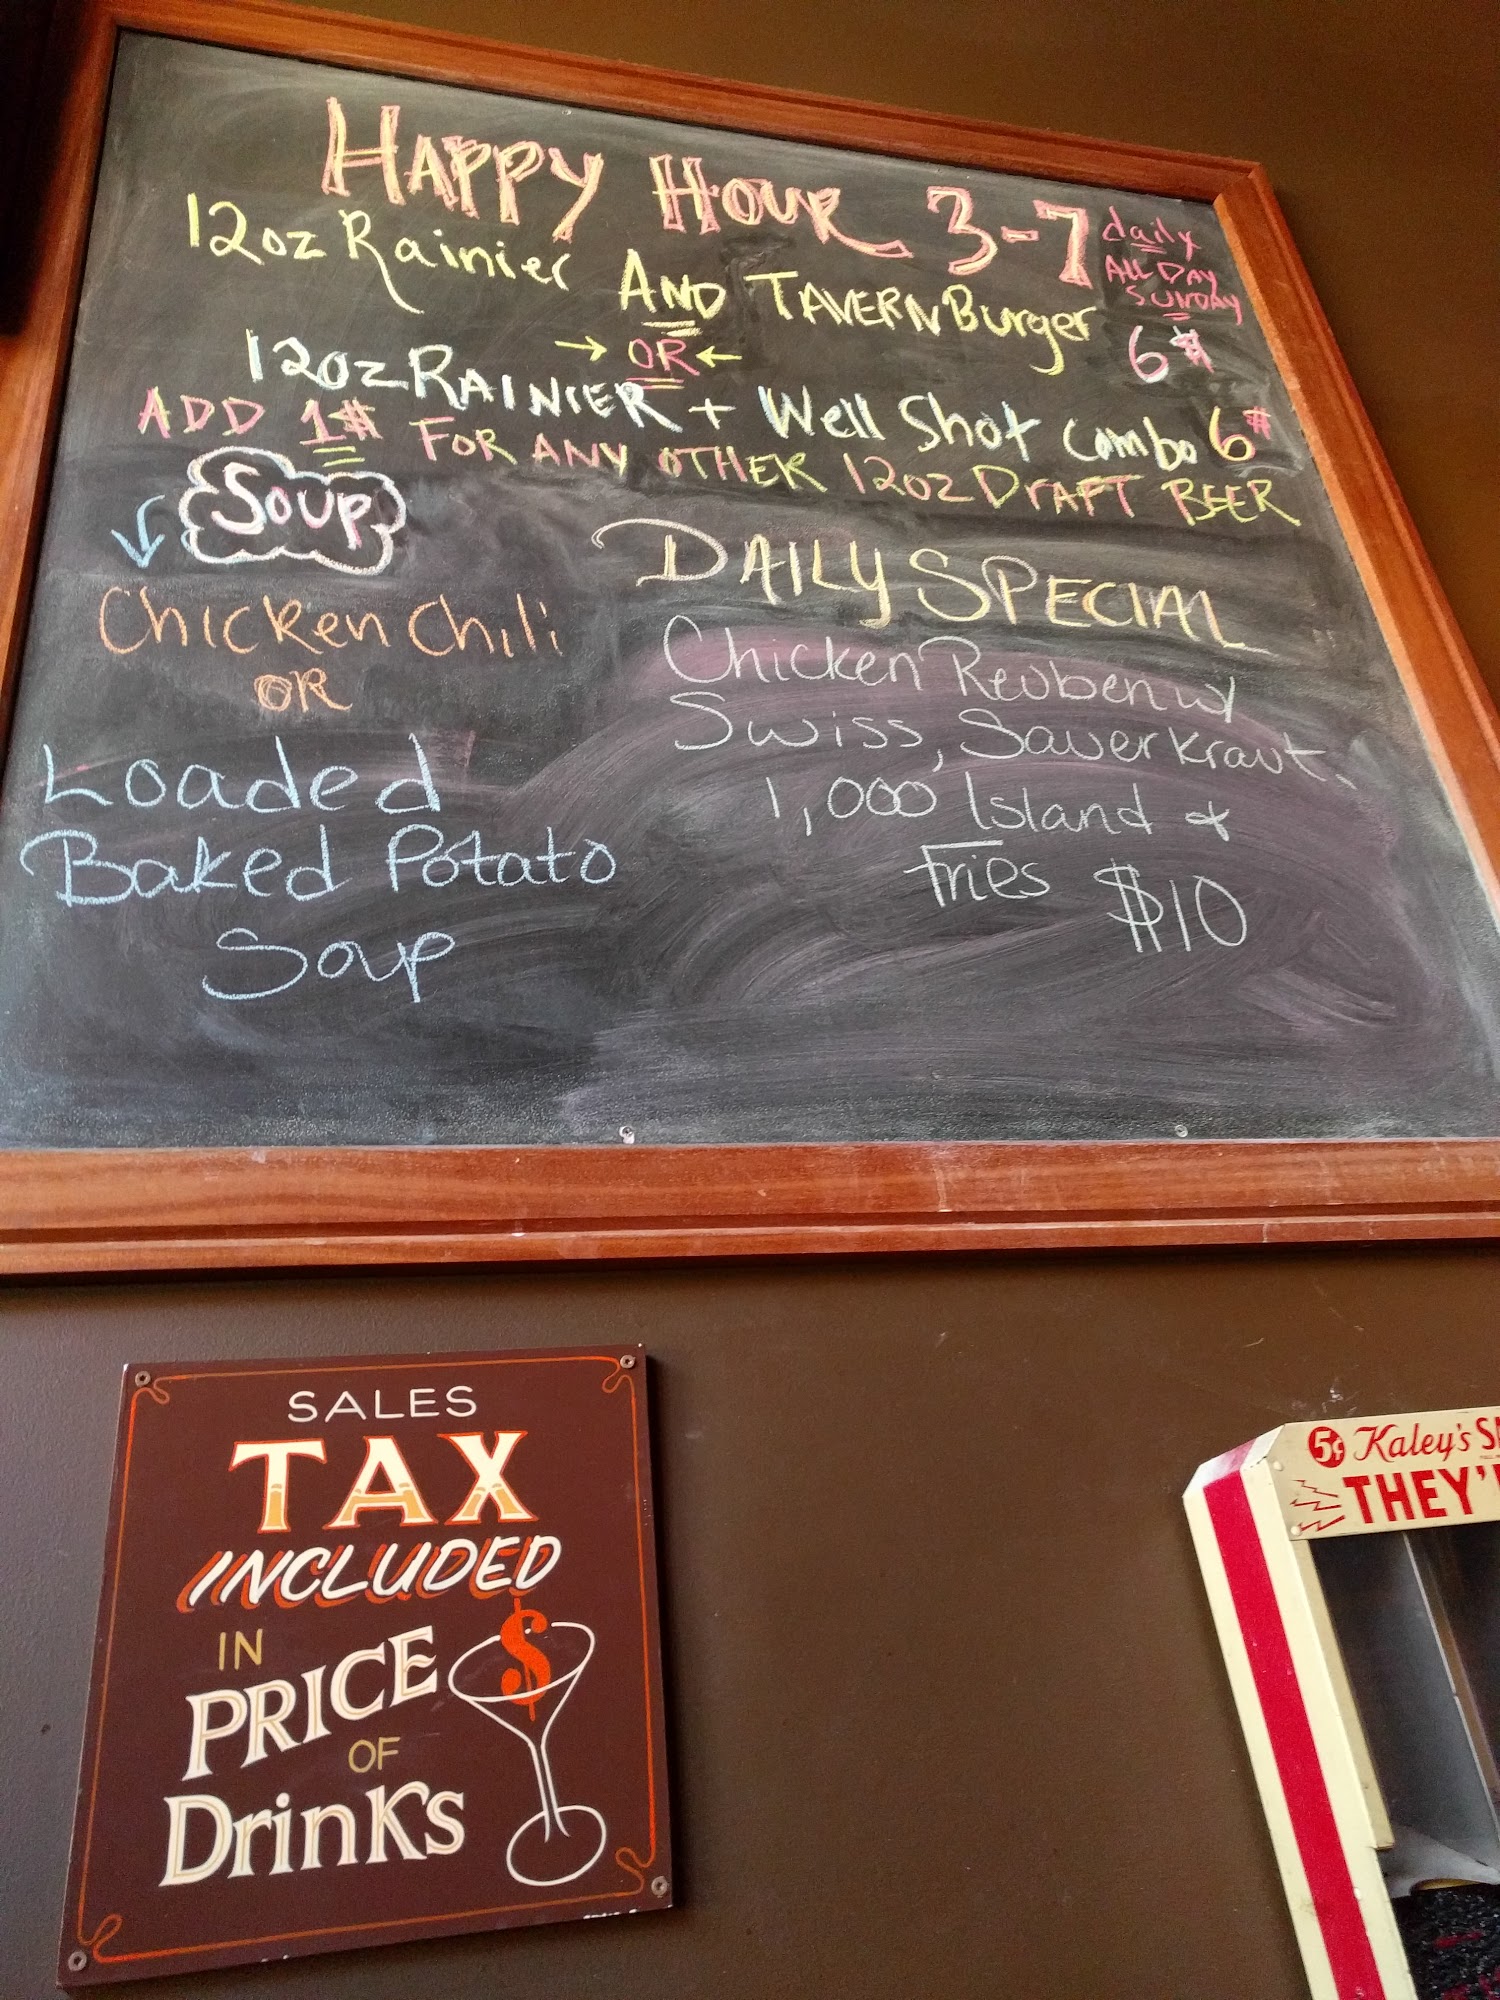 HAPPY HOUR 3-7 daily
ALL DAY
SUNDAY
12oz Rainier AND TAVERN Burger 6$
→ OR ←
12oz RAINIER + Well Shot Combo 6$
ADD 1$ FOR ANY OTHER 12oz DrAFT BEER
Soup
Chicken Chili
OR
Loaded
Baked Potato
Soup
DAILY SPECIAL
Chicken Reuben w/
Swiss, Sauerkraut,
1,000 Island &
Fries $10
SALES
TAX
INCLUDED
IN
PRICE
OF
DrinKs
$
5¢ Kaley's
THEY'